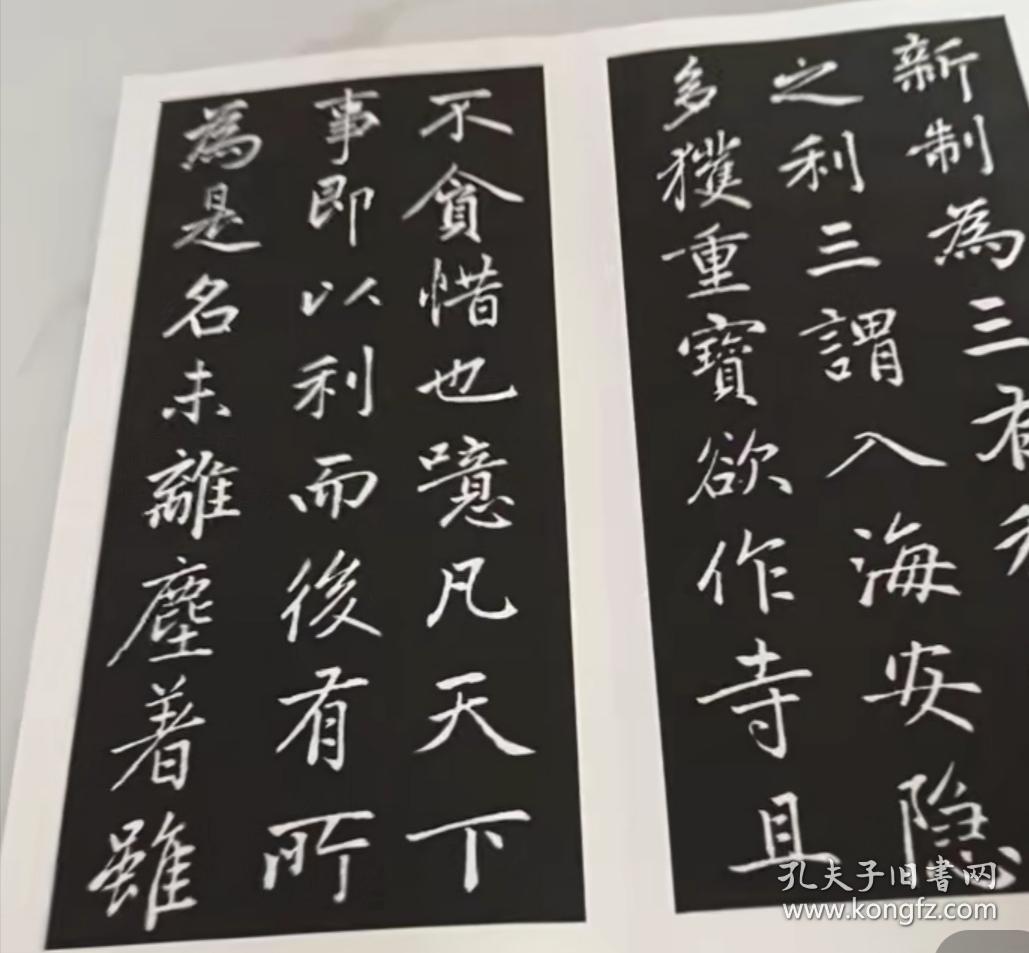 新制為三
之利三謂入海安隐
多獲重寶欲作寺且
不貪惜也噫凡天下
事即以利而後有所
為是名未離塵著雖
孔夫子旧书网
www.kongfz.com